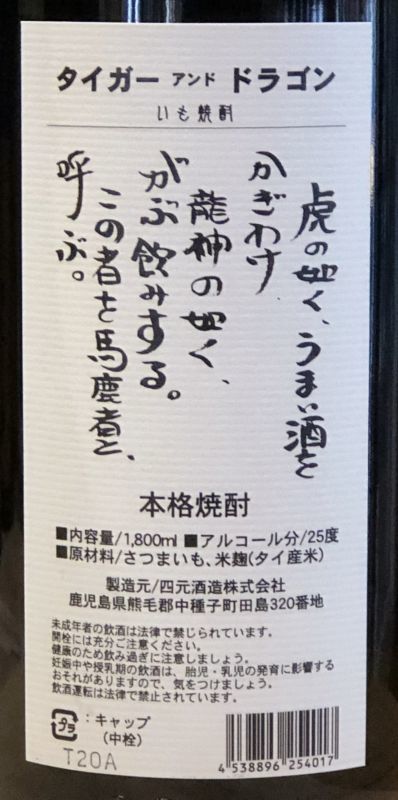 タイガー アンド ドラゴン
いも焼酎
虎の如く、うまい酒を
かぎわけ
龍神の如く、
がぶ飲みする。
この者を馬鹿者と、
呼ぶ。
本格焼酎
■内容量/1,800ml ■アルコール分/25度
■原材料/さつまいも、米麹(タイ産米)
製造元/四元酒造株式会社
鹿児島県熊毛郡中種子町田島320番地
未成年者の飲酒は法律で禁じられています。
開栓には充分ご注意ください。
健康のため飲み過ぎに注意しましょう。
妊娠中や授乳期の飲酒は、胎児・乳児の発育に影響する
おそれがありますので、気をつけましょう。
飲酒運転は法律で禁止されています。
プラ : キャップ
(中栓)
T20A
4 538896 254017